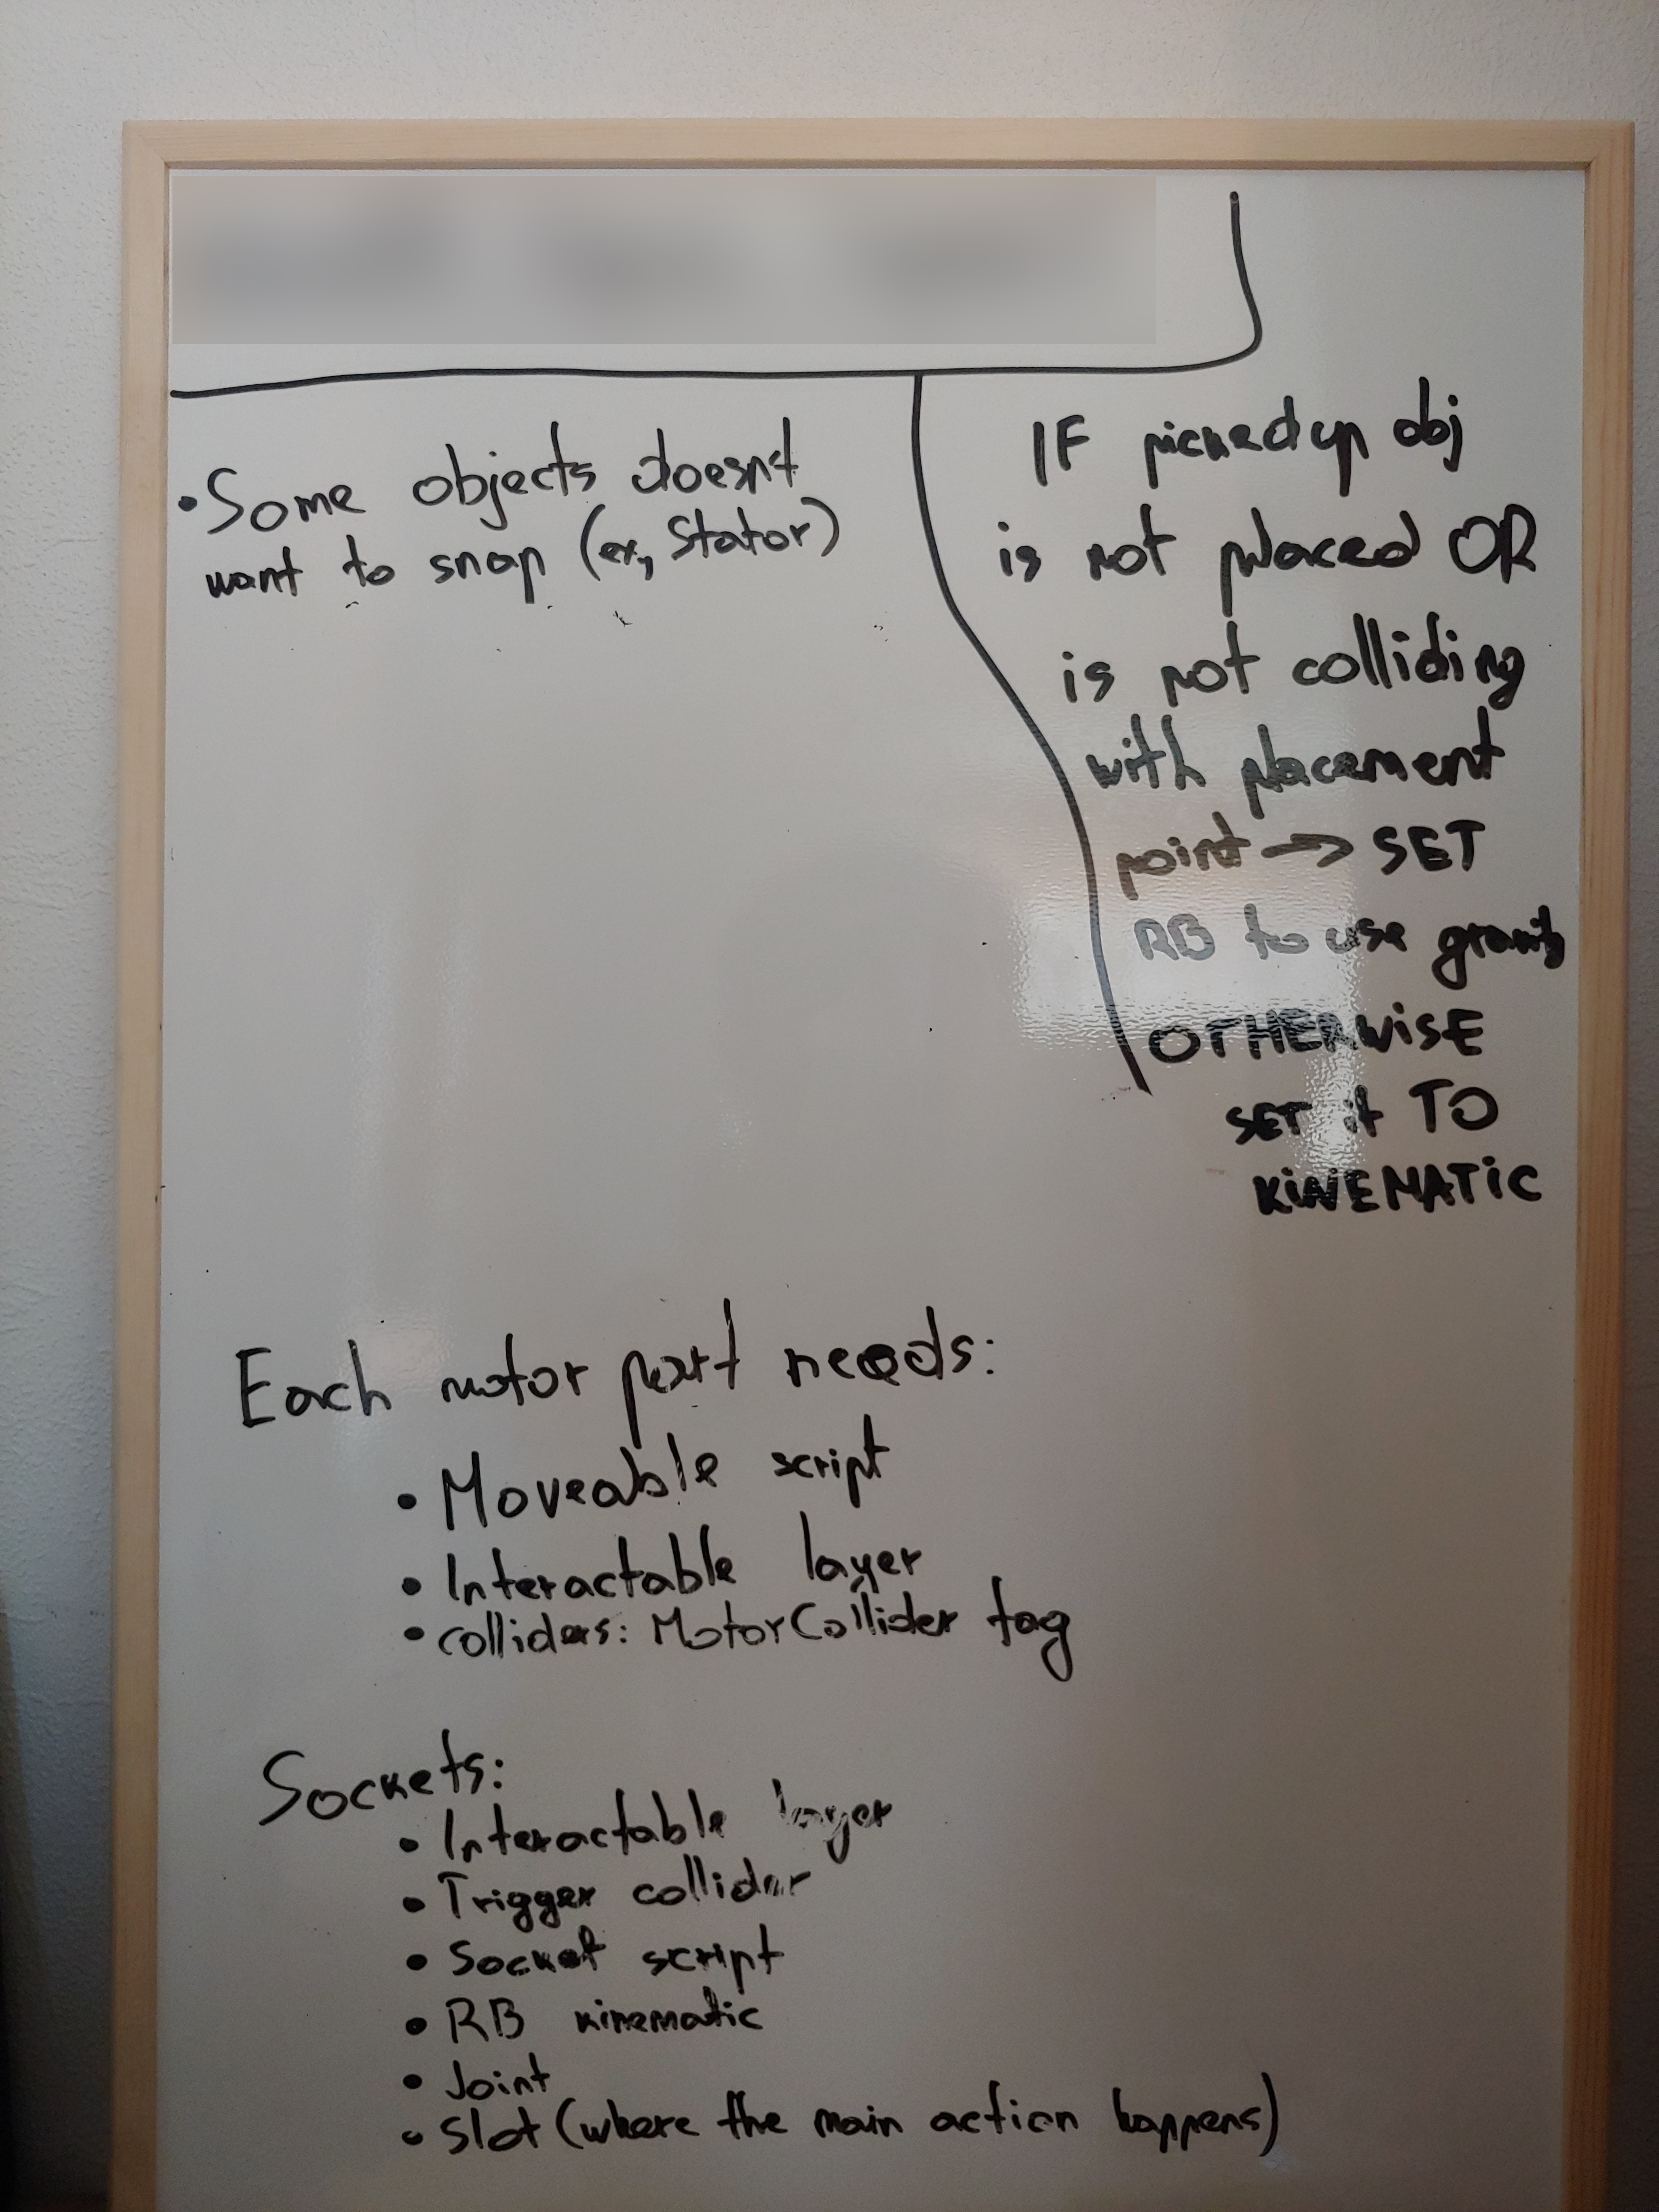 • Some objects doesn't
want to snap (ex, Stator)
IF picked up obj
is not placed OR
is not colliding
with placement
point → SET
RB to use gravity
OTHERWISE
SET it TO
KINEMATIC
Each motor part needs:
• Moveable script
• Interactable layer
• colliders: MotorCollider tag
Sockets:
• Interactable layer
• Trigger collider
• Socket script
• RB kinematic
• Joint
• Slot (where the main action happens)